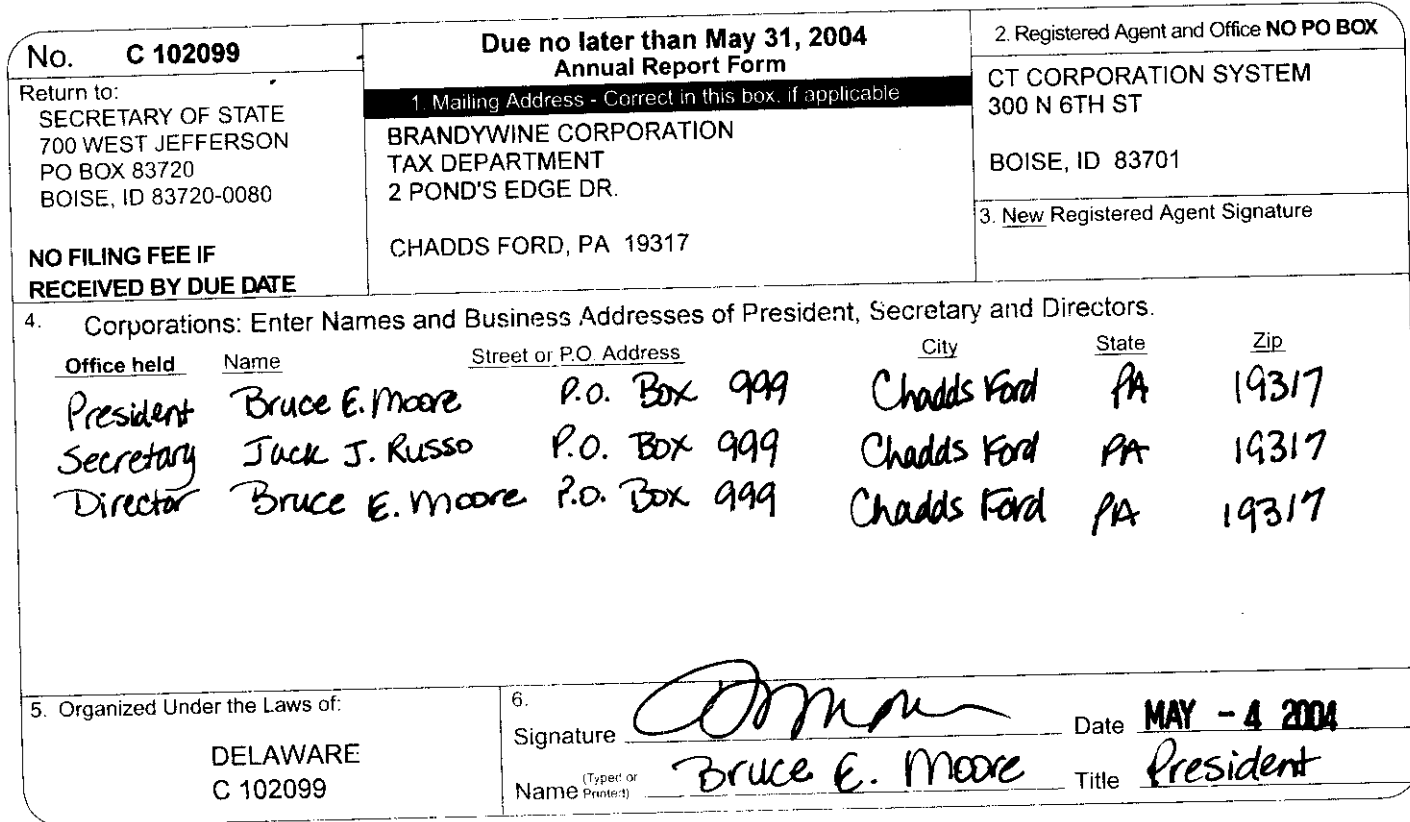 No. C 102099
Return to:
SECRETARY OF STATE
700 WEST JEFFERSON
PO BOX 83720
BOISE, ID 83720-0080
NO FILING FEE IF
RECEIVED BY DUE DATE
Due no later than May 31, 2004
Annual Report Form
1. Mailing Address - Correct in this box, if applicable
BRANDYWINE CORPORATION
TAX DEPARTMENT
2 POND'S EDGE DR.
CHADDS FORD, PA 19317
2. Registered Agent and Office NO PO BOX
CT CORPORATION SYSTEM
300 N 6TH ST
BOISE, ID 83701
3. New Registered Agent Signature
4. Corporations: Enter Names and Business Addresses of President, Secretary and Directors.
Office held Name Street or P.O. Address City State Zip
President Bruce E. Moore P.O. Box 999 Chadds Ford PA 19317
Secretary Jack J. Russo P.O. Box 999 Chadds Ford PA 19317
Director Bruce E. Moore P.O. Box 999 Chadds Ford PA 19317
5. Organized Under the Laws of:
DELAWARE
C 102099
6.
Signature Date MAY - 4 2004
Name (Typed or Printed) Bruce E. Moore Title President